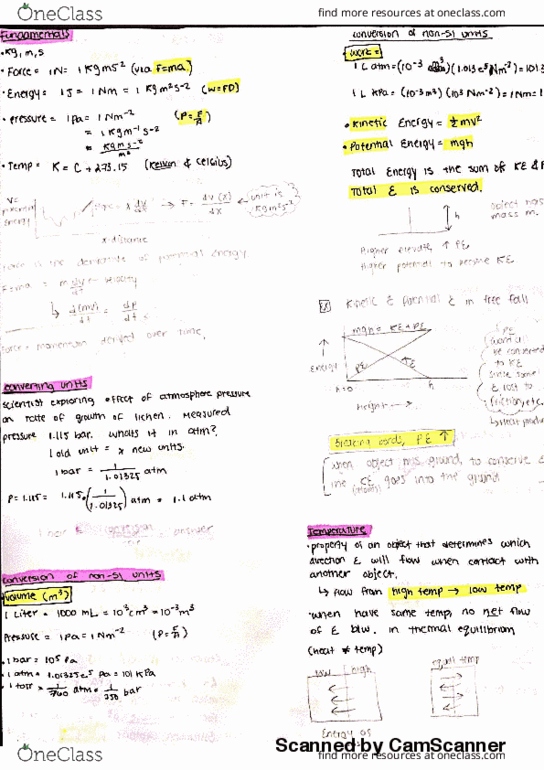 OneClass
find more resources at oneclass.com
Fundamentals
• Kg, m, s
• Force = 1N = 1 Kg ms-2 (via F=ma)
• Energy = 1J = 1Nm = 1 Kg m2s-2 (W=FD)
• Pressure = 1Pa = 1 Nm-2 (P=F/A)
= 1 Kgm-1 s-2
= Kgms-2/m2
• Temp = K = C + 273.15 (Kelvin & Celcius)
V=
potential
energy
F = - dV(x)/dx
unit is
Kgms-2
x-distance
Force is the derivative of potential energy.
F=ma = m dv/dt velocity
↳ d(mv)/dt = dP/dt
Force = momentum over time.
converting units
scientist exploring effect of atmosphere pressure
on rate of growth of lichen. Measured
pressure 1.115 bar. Whats it in atm?
1 old unit = x new units.
1 bar = 1/1.01325 atm
P = 1.115 = 1.115(1/1.01325) atm = 1.1 atm
answer
conversion of non-SI units
volume (m3)
1 Liter = 1000 mL = 103cm3 = 10-3m3
Pressure = 1Pa = 1 Nm-2 (P=F/A)
• 1 bar = 105 Pa
• 1 atm = 1.01325e5 Pa = 101 KPa
• 1 torr = 1/760 atm = 1/750 bar
conversion of non-SI units
• work =
1 L atm = (10-3 m3)(1.013e5 Nm-2) = 101.3
1 L KPa = (10-3m3)(103 Nm-2) = 1Nm = 1
• Kinetic Energy = ½mv2
• Potential Energy = mgh
Total Energy is the sum of KE & P
Total E is conserved.
h
object has
mass m.
Higher elevate ↑ PE
Higher potential to become KE
Kinetic E & potential E in free fall
mgh = KE + PE
Energy
PE
KE
h=0
h
Height →
PE
be converted
to KE
since some
E lost to
friction, etc.
Breaking bonds, PE ↑
When object hits ground, to conserve E
the KE goes into the ground
Temperature
• property of an object that determines which
direction E will flow when contact with
another object.
↳ flow from high temp → low temp
• when have same temp, no net flow
of E btw. in thermal equilibrium
(heat ≠ temp)
low
high
equal temp
Energy as
Scanned by CamScanner
OneClass
find more resources at oneclass.com